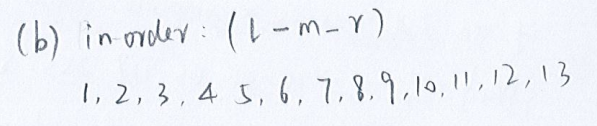 (b) in-order: (l-m-r)
1, 2, 3, 4 5, 6, 7, 8, 9, 10, 11, 12, 13